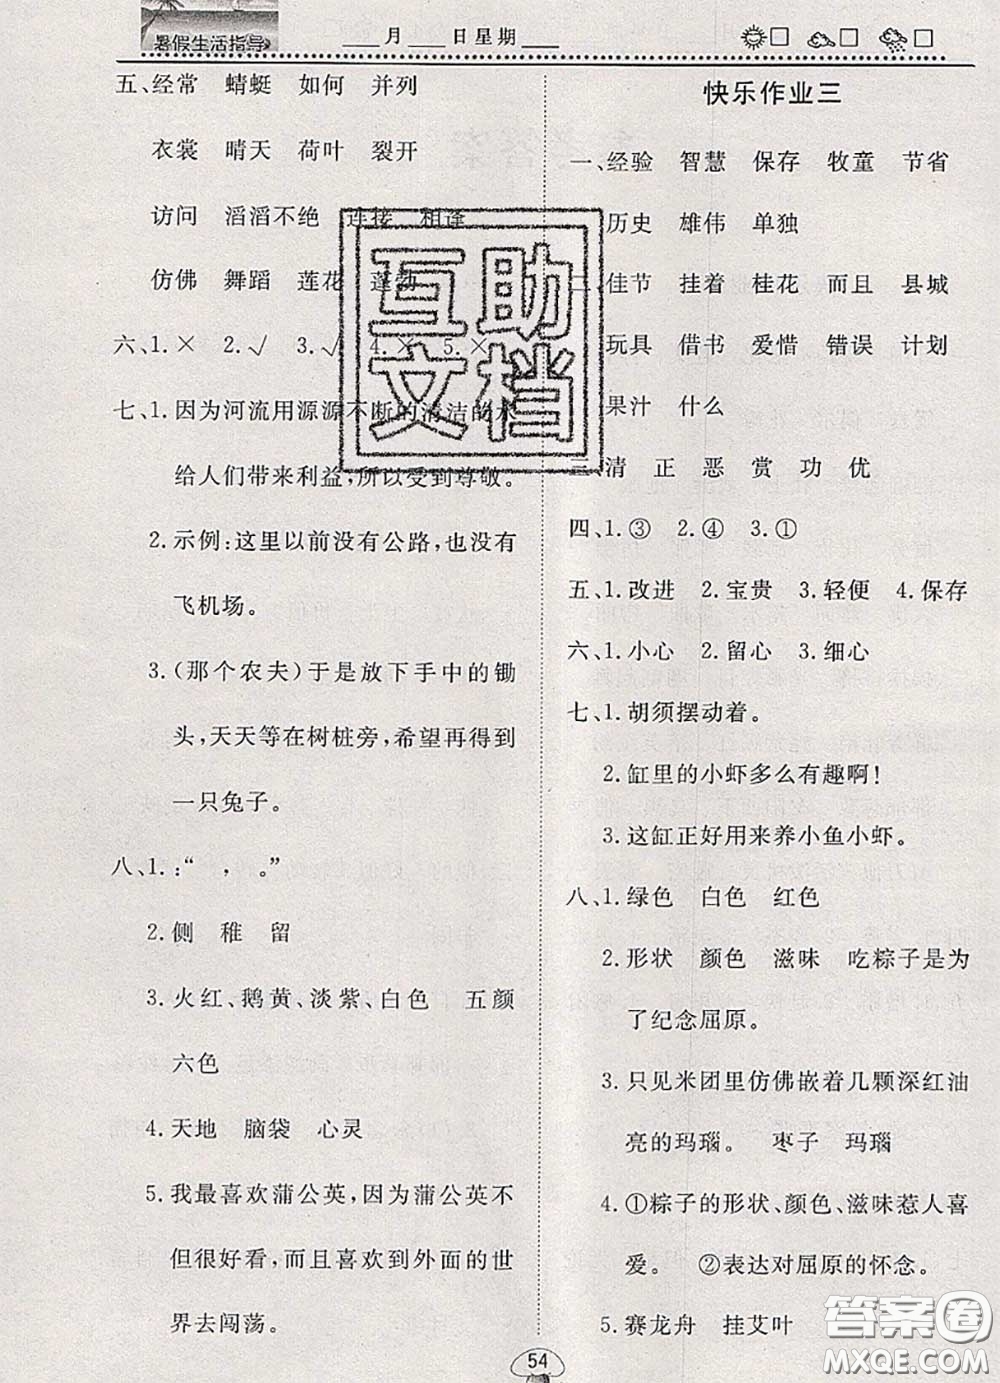 暑假生活指导
月 日星期
五、经常 蜻蜓 如何 并列
衣裳 晴天 荷叶 裂开
访问 滔滔不绝 连接 相逢
仿佛 舞蹈 莲花 蓬勃
六、1.× 2.√ 3.√ 4.× 5.×
七、1.因为河流用源源不断的清洁的水
给人们带来利益,所以受到尊敬。
2.示例:这里以前没有公路,也没有
飞机场。
3.(那个农夫)于是放下手中的锄
头,天天等在树桩旁,希望再得到
一只兔子。
八、1.:“ , 。”
2.侧 稚 留
3.火红、鹅黄、淡紫、白色 五颜
六色
4.天地 脑袋 心灵
5.我最喜欢蒲公英,因为蒲公英不
但很好看,而且喜欢到外面的世
界去闯荡。
快乐作业三
一、经验 智慧 保存 牧童 节省
历史 雄伟 单独
二、佳节 挂着 桂花 而且 县城
玩具 借书 爱惜 错误 计划
果汁 什么
三、清 正 恶 赏 功 优
四、1.③ 2.④ 3.①
五、1.改进 2.宝贵 3.轻便 4.保存
六、1.小心 2.留心 3.细心
七、1.胡须摆动着。
2.缸里的小虾多么有趣啊!
3.这缸正好用来养小鱼小虾。
八、1.绿色 白色 红色
2.形状 颜色 滋味 吃粽子是为
了纪念屈原。
3.只见米团里仿佛嵌着几颗深红油
亮的玛瑙。 枣子 玛瑙
4.①粽子的形状、颜色、滋味惹人喜
爱。 ②表达对屈原的怀念。
5.赛龙舟 挂艾叶
54
互助
文档
答案卷
MXQE.COM